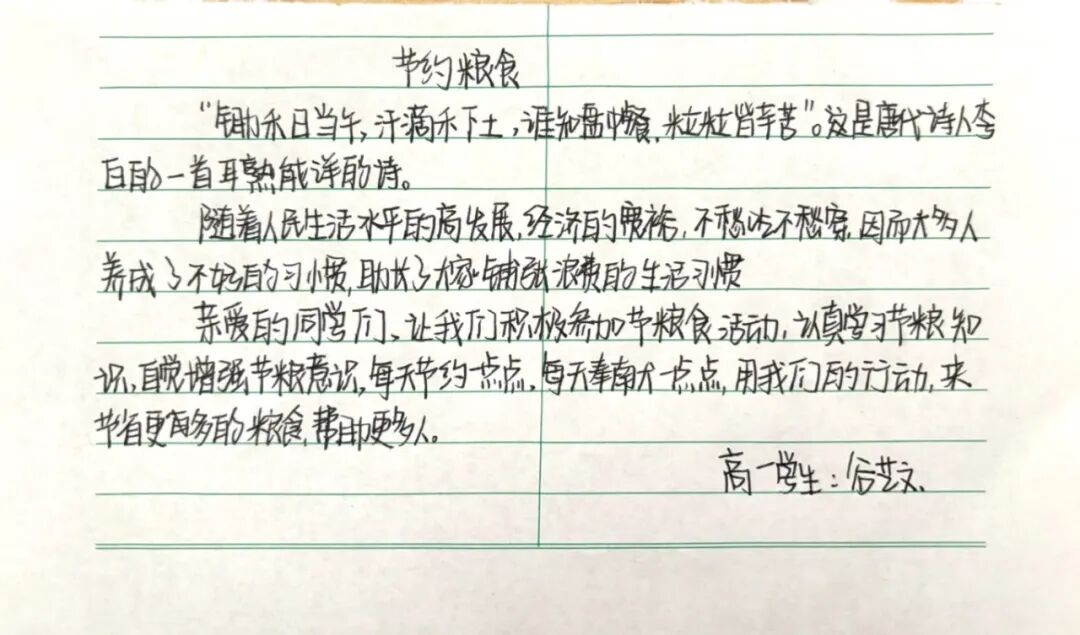 节约粮食
“锄禾日当午,汗滴禾下土,谁知盘中餐,粒粒皆辛苦”。这是唐代诗人李
白的一首耳熟能详的诗。
随着人民生活水平的高发展,经济的宽裕,不愁吃不愁穿,因而大多人
养成了不好的习惯,助长了大家铺张浪费的生活习惯
亲爱的同学们、让我们积极参加节粮食活动,认真学习节粮知
识,自觉增强节粮意识,每天节约一点点,每天奉献一点点,用我们的行动,来
节省更多的粮食,帮助更多人。
高一学生:谷艺文.